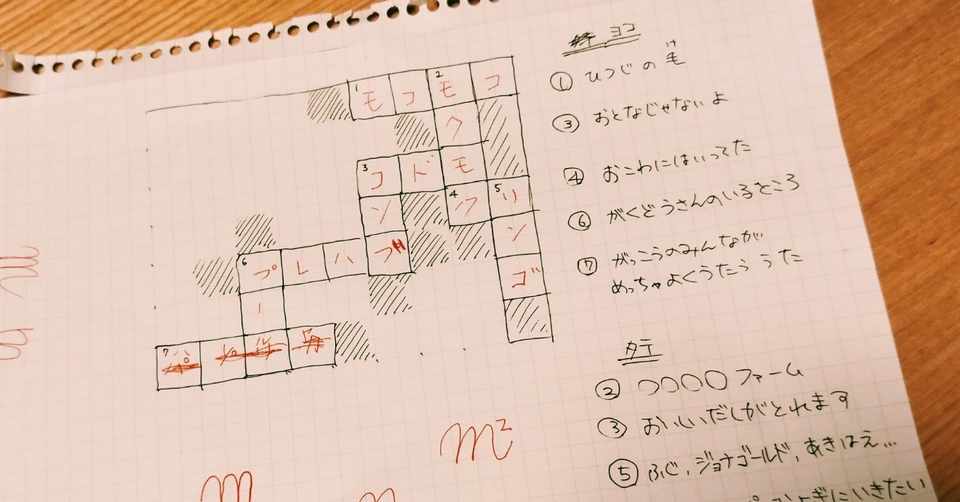 1モコ2モコ
ク
3コドモ
ン 4ク5リ
6プレハブ ン
ー ゴ
7
ヨコ
① ひつじの毛
け
③ おとなじゃないよ
④ おこわにはいってた
⑥ がくどうさんのいるところ
⑦ がっこうのみんなが
めっちゃよくうたう うた
タテ
② ○○○○ファーム
③ おいしいだしがとれます
⑤ ふじ, ジョナゴールド, あきばえ...
よぎにいきたい
m²
m